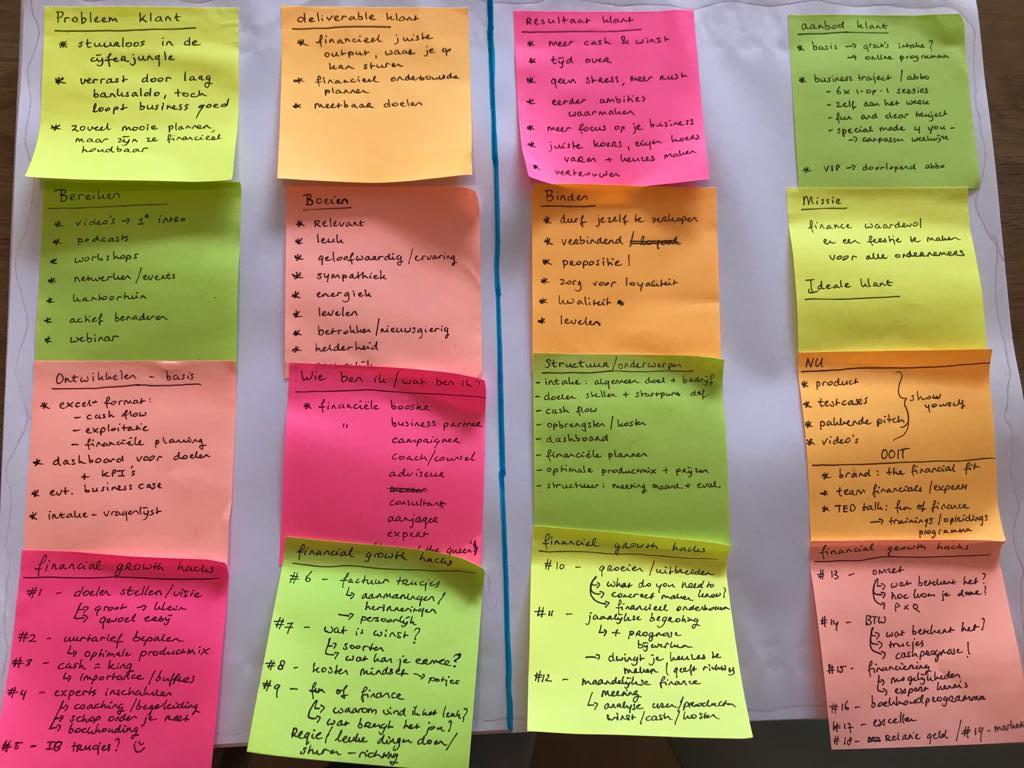 Probleem klant
* stuurloos in de
cijferjungle
* verrast door laag
banksaldo, toch
loopt business goed
* zoveel mooie plannen,
maar zijn ze financieel
houdbaar
deliverable klant
* financieel juiste
output, waar je op
kan sturen
* financieel onderbouwde
plannen
* meetbaar doelen
Resultaat klant
* meer cash & winst
* tijd over
* geen stress, meer rust
* eerder ambities
waarmaken
* meer focus op je business
* juiste koers, eigen koers
varen + keuzes maken
* vertrouwen
aanbod klant
* basis → gratis intake?
↳ online programma
* business traject / abbo
- 6x 1-op-1 sessies
- zelf aan het werk
- fun and clear traject
- special made 4 you -
→ aanpassen werkwijze
* VIP → doorlopend abbo
Bereiken
* video's → 1e intro
* podcasts
* workshops
* netwerken/events
* kantoortuin
* actief benaderen
* webinar
Boeien
* Relevant
* leuk
* geloofwaardig/ervaring
* sympathiek
* energiek
* levelen
* betrokken/nieuwsgierig
* helderheid
Binden
* durf jezelf te verkopen
* verbindend /
* propositie!
* zorg voor loyaliteit
* kwaliteit
* levelen
Missie
finance waardevol
en een feestje te maken
voor alle ondernemers
Ideale klant
Ontwikkelen - basis
* excel-format:
- cash flow
- exploitatie
- financiële planning
* dashboard voor doelen
+
KPI's
* evt. business case
* intake-vragenlijst
Wie ben ik/wat ben ik?
* financiële booster
" business partner
campaigner
coach/counsel
adviseur
mentor
consultant
aanjager
expert
the queen
Structuur/onderwerpen
- intake: algemeen doel + bedrijf
- doelen stellen + startpunt def.
- cash flow
- opbrengsten/kosten
- dashboard
- financiële plannen
- optimale productmix + prijzen
- structuur: meeting maand. + eval.
NU
* product
* testcases
* pakkende pitch
* video's
show
yourself
OOIT
* brand: the financial fit
* team financials/experts
* TED talk: fun of finance
→ trainings/opleidings
programma
financial growth hacks
#1 - doelen stellen/visie
↳ groot → klein
↳ gevoel erbij
#2 - uurtarief bepalen
↳ optimale productmix
#3 - cash = king
↳ importance/buffers
#4 - experts inschakelen
↳ coaching/begeleiding
↳ schop onder je reet
↳ boekhouding
#5 - IB trucjes? ☺
financial growth hacks
#6 - factuur trucjes
↳ aanmaningen/
herinneringen
→ persoonlijk
#7 - wat is winst?
↳ soorten
↳ wat kan je ermee?
#8 - kosten mindset → potjes
#9 - fun of finance
↳ waarom vind ik het leuk?
↳ wat brengt het jou?
Regie/leuke dingen doen/
sturen - richting
financial growth hacks
#10 - groeien/uitbreiden
↳ what do you need to
↳ concreet maken know?
↳ financieel onderbouwen
#11 - jaarlijkse begroting
↳ + prognose
bijwerken
→ dwingt je keuzes te
maken / geeft richting
#12 - maandelijkse finance
meeting
↳ analyse uren/producten
winst/cash/kosten
financial growth hacks
#13 - omzet
↳ wat betekent het?
↳ hoe kom je daar?
P x Q
#14 - BTW
↳ wat betekent het?
↳ trucjes
↳ cashprognose!
#15 - financiering
↳ mogelijkheden
↳ expert kennis
#16 - boekhoudprogramma
#17 - excellen
#18 - Relatie geld / #19 -